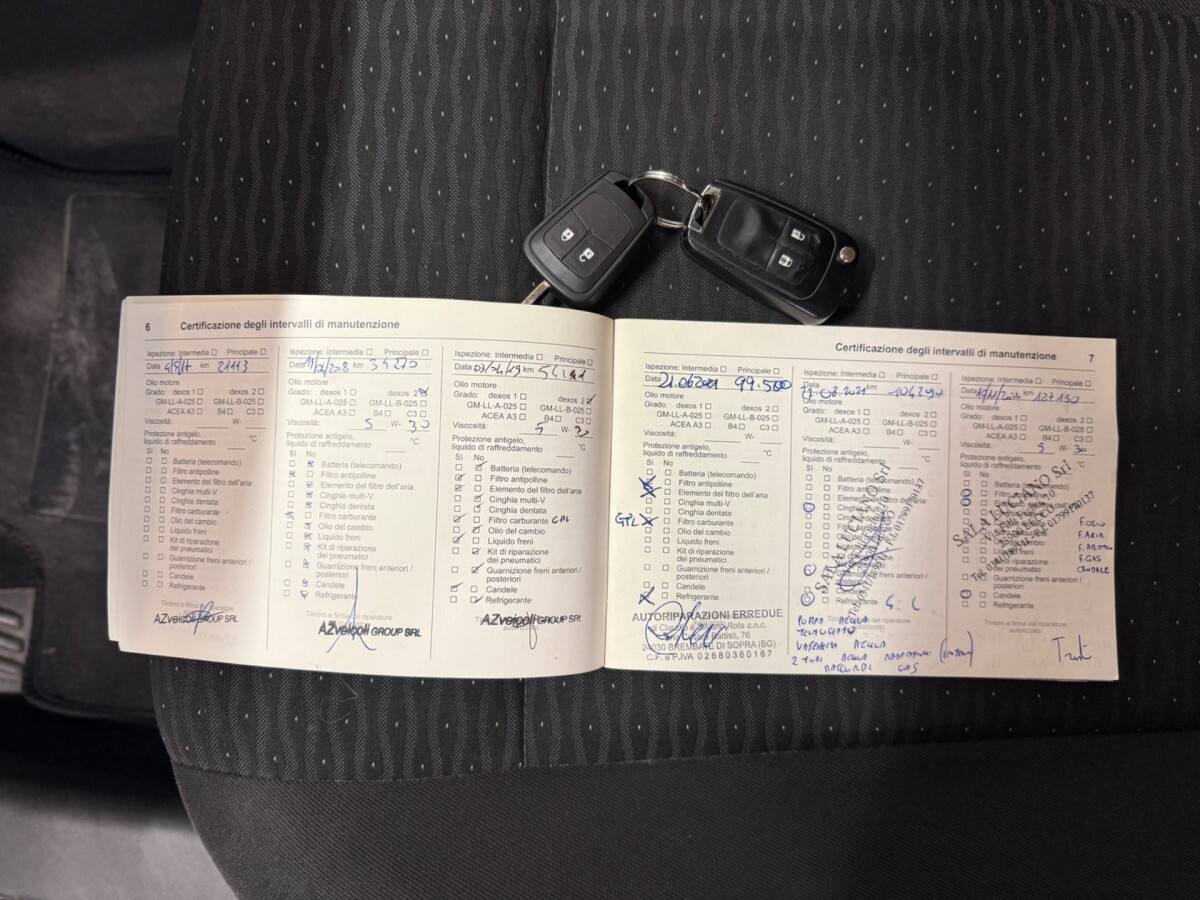 6 Certificazione degli intervalli di manutenzione
Ispezione: Intermedia Principale
Data km 21113
Olio motore
Grado: dexos 1 dexos 2
GM-LL-A-025 GM-LL-B-025
ACEA A3 B4 C3
Viscosità: W-
Protezione antigelo,
liquido di raffreddamento °C
Sì No
Batteria (telecomando)
Filtro antipolline
Elemento del filtro dell'aria
Cinghia multi-V
Cinghia dentata
Filtro carburante
Olio del cambio
Liquido freni
Kit di riparazione
dei pneumatici
Guarnizione freni anteriori /
posteriori
Candele
Refrigerante
Timbro e firma del riparatore
AZveicoli GROUP SRL
Ispezione: Intermedia Principale
Data km 34270
Olio motore
Grado: dexos 1 dexos 2
GM-LL-A-025 GM-LL-B-025
ACEA A3 B4 C3
Viscosità: 5 W- 30
Protezione antigelo,
liquido di raffreddamento °C
Sì No
Batteria (telecomando)
Filtro antipolline
Elemento del filtro dell'aria
Cinghia multi-V
Cinghia dentata
Filtro carburante
Olio del cambio
Liquido freni
Kit di riparazione
dei pneumatici
Guarnizione freni anteriori /
posteriori
Candele
Refrigerante
Timbro e firma del riparatore
AZveicoli GROUP SRL
Ispezione: Intermedia Principale
Data 03/04/19 km
Olio motore
Grado: dexos 1 dexos 2
GM-LL-A-025 GM-LL-B-025
ACEA A3 B4 C3
Viscosità: 5 W- 30
Protezione antigelo,
liquido di raffreddamento °C
Sì No
Batteria (telecomando)
Filtro antipolline
Elemento del filtro dell'aria
Cinghia multi-V
Cinghia dentata
Filtro carburante GPL
Olio del cambio
Liquido freni
Kit di riparazione
dei pneumatici
Guarnizione freni anteriori /
posteriori
Candele
Refrigerante
AZveicoli GROUP SRL
Certificazione degli intervalli di manutenzione 7
Ispezione: Intermedia Principale
Data 21.06.2021 99.500
Olio motore
Grado: dexos 1 dexos 2
GM-LL-A-025 GM-LL-B-025
ACEA A3 B4 C3
Viscosità: W-
Protezione antigelo,
liquido di raffreddamento °C
Sì No
Batteria (telecomando)
Filtro antipolline
Elemento del filtro dell'aria
Cinghia multi-V
Cinghia dentata
Filtro carburante
Olio del cambio
Liquido freni
Kit di riparazione
dei pneumatici
Guarnizione freni anteriori /
posteriori
Candele
Refrigerante
AUTORIPARAZIONI ERREDUE
Rota s.n.c.
Battisti, 76
24030 BREMBATE DI SOPRA (BG)
C.F. e P.IVA 02680360167
Ispezione: Intermedia Principale
Data km 104290
Olio motore
Grado: dexos 1 dexos 2
GM-LL-A-025 GM-LL-B-025
ACEA A3 B4 C3
Viscosità: W-
Protezione antigelo,
liquido di raffreddamento °C
Sì No
Batteria (telecomando)
Filtro antipolline
Refrigerante
POMPA ACQUA
VASCHETTA ACQUA
2 TUBI ACQUA
GAS
Ispezione: Intermedia Principale
Data km 127150
Olio motore
Grado: dexos 1 dexos 2
GM-LL-A-025 GM-LL-B-025
ACEA A3 B4 C3
Viscosità: 5 W- 30
Protezione antigelo,
liquido di raffreddamento °C
Sì No
Batteria (telecomando)
SALA LUCIANO Srl
Guarnizione freni anteriori /
posteriori
Candele
Refrigerante
F. OLIO
F. ARIA
F. GAS
CANDELE
Timbro e firma del riparatore
autorizzato